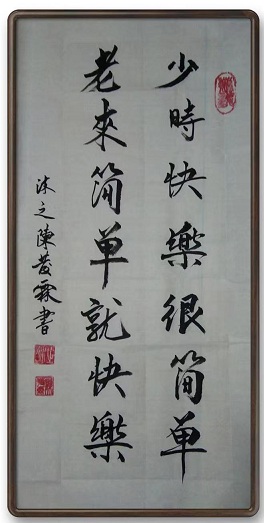 少時快樂很簡單
老來简单就快樂
沐之陳菱霖書